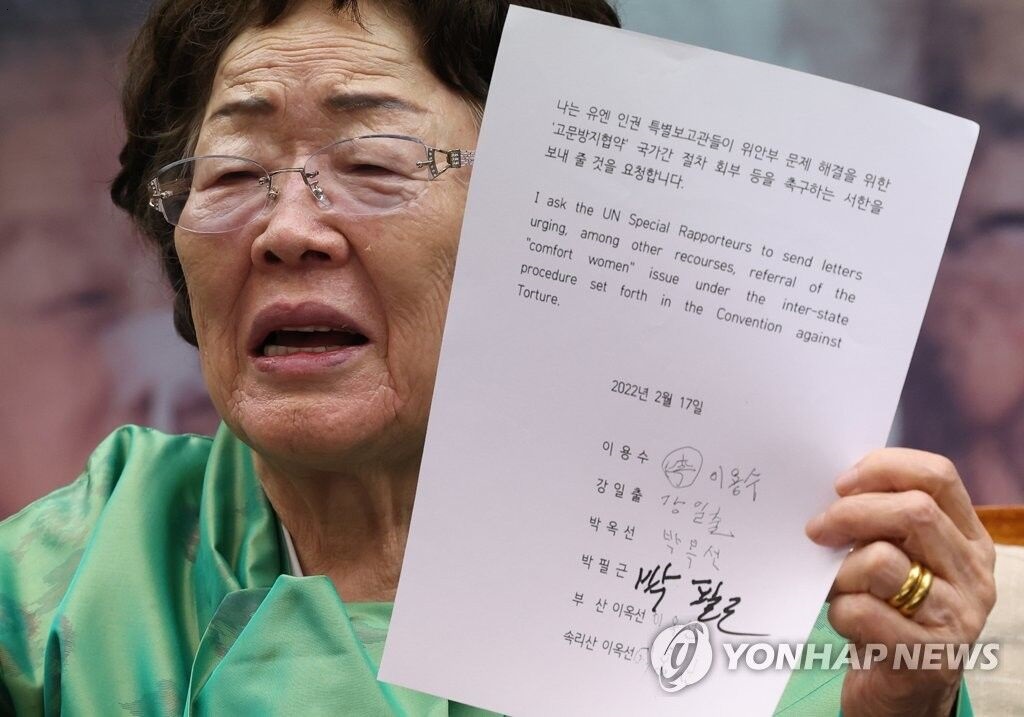 나는 유엔 인권 특별보고관들이 위안부 문제 해결을 위한
'고문방지협약' 국가간 절차 회부 등을 촉구하는 서한을
보내 줄 것을 요청합니다.
I ask the UN Special Rapporteurs to send letters
urging, among other recourses, referral of the
"comfort women" issue under the inter-state
procedure set forth in the Convention against
Torture.
2022년 2월 17일
이 용 수 이용수
강 일 출 강일출
박 옥 선 박옥선
박 필 근 박필근
부 산 이옥선
속리산 이옥선
YONHAP NEWS